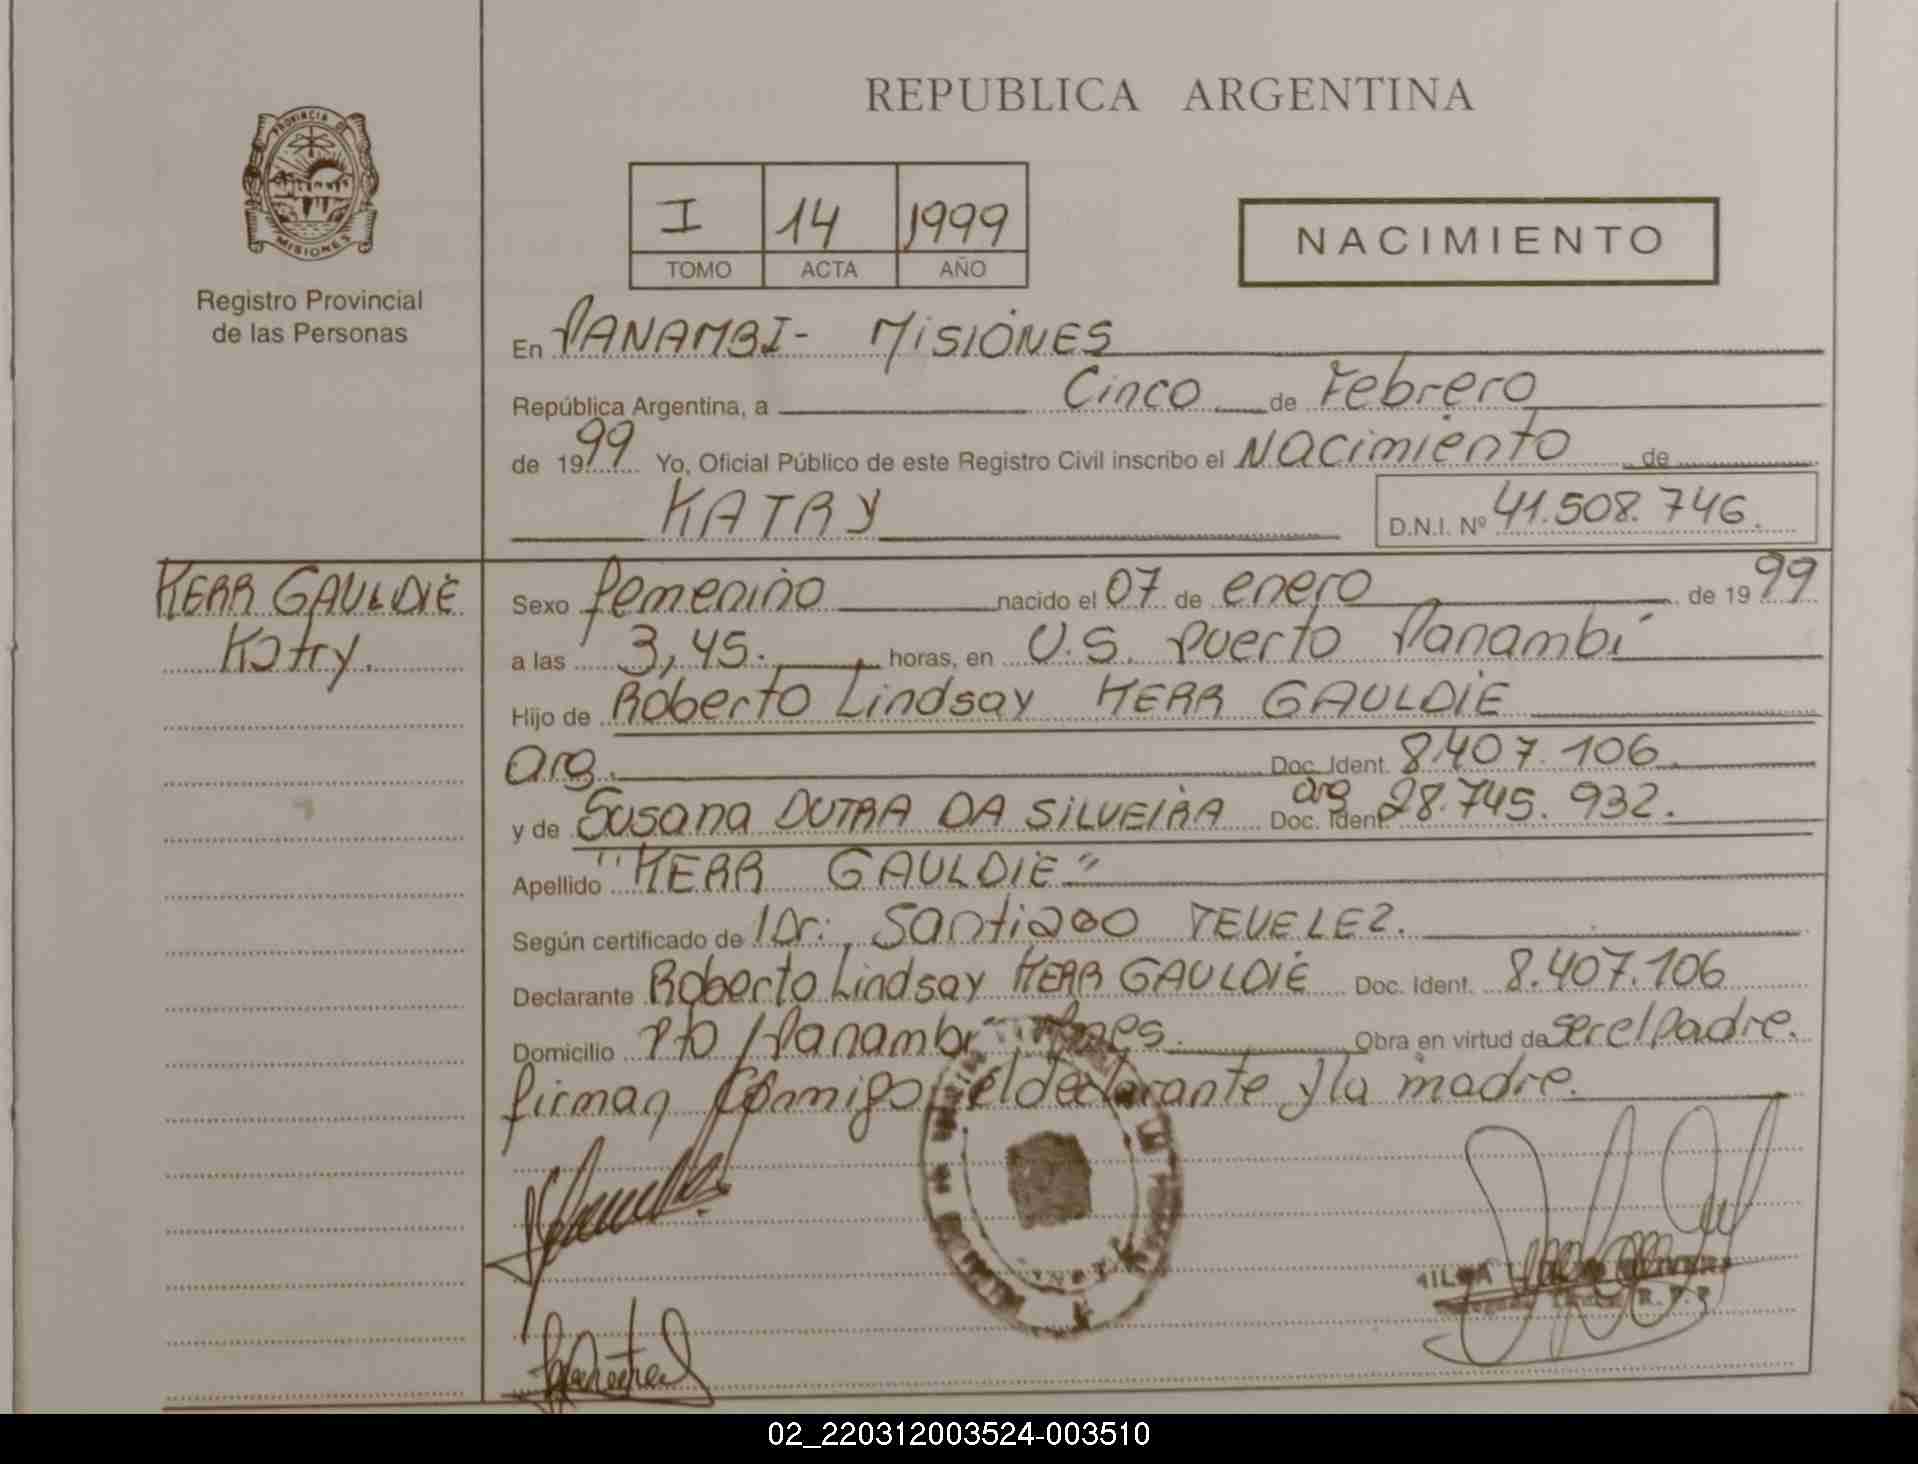 PROVINCIA DE
MISIONES
Registro Provincial
de las Personas
REPUBLICA ARGENTINA
I 14 1999
TOMO ACTA AÑO
NACIMIENTO
En PANAMBI- MISIONES
República Argentina, a Cinco de Febrero
de 1999 Yo, Oficial Público de este Registro Civil inscribo el Nacimiento de
KATRY
D.N.I. Nº 41.508.746.
KERR GAULDIE
Katry.
Sexo femenino nacido el 07 de enero de 1999
a las 3,45. horas, en U.S. Puerto Panambí
Hijo de Roberto Lindsay KERR GAULDIE
arg. Doc. Ident. 8.407.106
y de Susana DUTRA DA SILVEIRA arg Doc. Ident. 28.745.932.
Apellido "KERR GAULDIE"
Según certificado de Dr. Santiago
Declarante Roberto Lindsay KERR GAULDIE Doc. Ident. 8.407.106
Domicilio Pto Panambí Mnes. Obra en virtud de ser el padre.
firman conmigo el declarante y la madre.
R.P.P
02_220312003524-003510